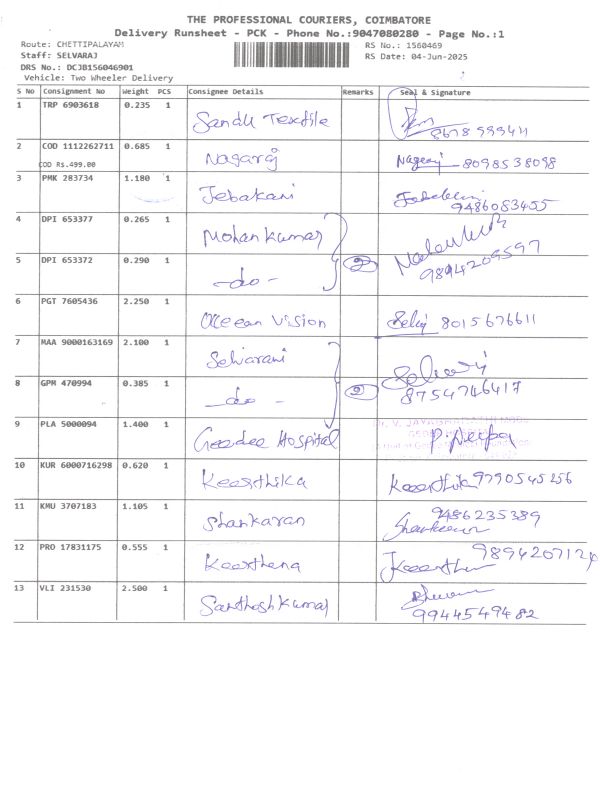 THE PROFESSIONAL COURIERS, COIMBATORE
Delivery Runsheet - PCK - Phone No.:9047080280 - Page No.:1
Route: CHETTIPALAYAM
Staff: SELVARAJ
DRS No.: DCJB156046901
Vehicle: Two Wheeler Delivery
RS No.: 1560469
RS Date: 04-Jun-2025
S No Consignment No Weight PCS Consignee Details Remarks Seal & Signature
1 TRP 6903618 0.235 1 Sandu Textile 8678 999411
2 COD 1112262711 0.685 1 Nagaraj Nagaraj 8098538098
COD Rs.499.00
3 PMK 283734 1.180 1 Jebakani 9486083455
4 DPI 653377 0.265 1 Mohan Kumar
5 DPI 653372 0.290 1 -do- 2 9894209597
6 PGT 7605436 2.250 1 Oceean Vision Selvj 8015676611
7 MAA 9000163169 2.100 1 Selvarani
8 GPM 470994 0.385 1 -do- 2 8754746417
9 PLA 5000094 1.400 1 Geedee Hospital P. Deepa
10 KUR 6000716298 0.620 1 Keerthika Keerthika 9790545256
11 KMU 3707183 1.105 1 Shankaran 9486235389
12 PRO 17831175 0.555 1 Keerthana 9894207124
13 VLI 231530 2.500 1 Santhosh Kumar 9944549482